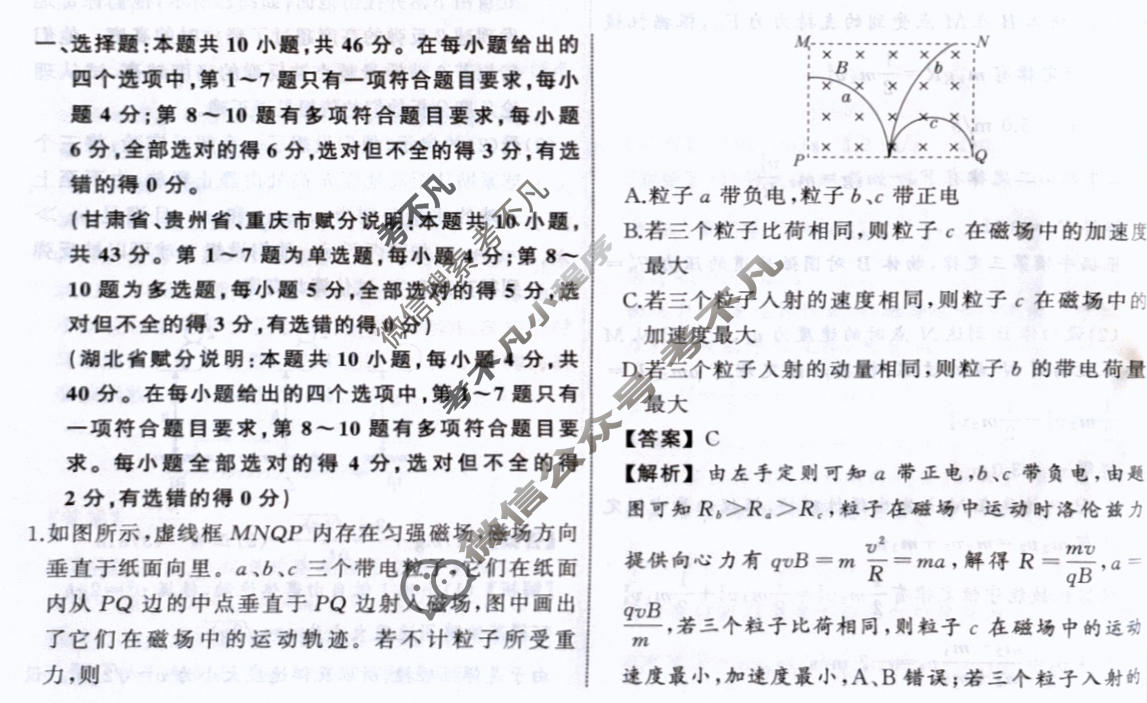 一、选择题:本题共 10 小题,共 46 分。在每小题给出的
四个选项中,第 1～7 题只有一项符合题目要求,每小
题 4 分;第 8～10 题有多项符合题目要求,每小题
6 分,全部选对的得 6 分,选对但不全的得 3 分,有选
错的得 0 分。
(甘肃省、贵州省、重庆市赋分说明:本题共 10 小题,
共 43 分。第 1～7 题为单选题,每小题 4 分;第 8～
10 题为多选题,每小题 5 分,全部选对的得 5 分,选
对但不全的得 3 分,有选错的得 0 分)
(湖北省赋分说明:本题共 10 小题,每小题 4 分,共
40 分。在每小题给出的四个选项中,第 1～7 题只有
一项符合题目要求,第 8～10 题有多项符合题目要
求。每小题全部选对的得 4 分,选对但不全的得
2 分,有选错的得 0 分)
1.如图所示,虚线框 MNQP 内存在匀强磁场,磁场方向
垂直于纸面向里。a、b、c 三个带电粒子,它们在纸面
内从 PQ 边的中点垂直于 PQ 边射入磁场,图中画出
了它们在磁场中的运动轨迹。若不计粒子所受重
力,则
M N
B b
a
c
P Q
A.粒子 a 带负电,粒子 b、c 带正电
B.若三个粒子比荷相同,则粒子 c 在磁场中的加速度
最大
C.若三个粒子入射的速度相同,则粒子 c 在磁场中的
加速度最大
D.若三个粒子入射的动量相同,则粒子 b 的带电荷量
最大
【答案】C
【解析】由左手定则可知 a 带正电,b、c 带负电,由题
图可知 R_b>R_a>R_c,粒子在磁场中运动时洛伦兹力
提供向心力有 qvB=m v²/R=ma,解得 R=mv/qB,a=
qvB/m,若三个粒子比荷相同,则粒子 c 在磁场中的运动
速度最小,加速度最小,A、B 错误;若三个粒子入射的
考不凡
微信搜索 考不凡
考不凡小程序
微信公众号 考不凡